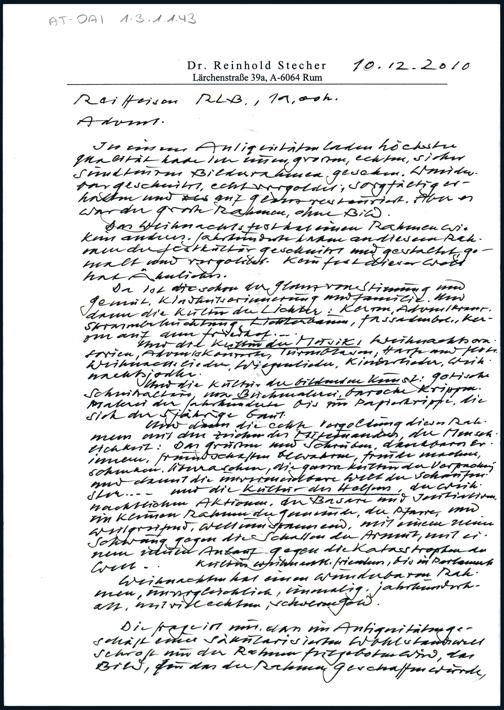 AT-OAI 1.3.1.1.43
Dr. Reinhold Stecher
Lärchenstraße 39a, A-6064 Rum
10.12.2010
Raiffeisen RLB.,
Advent.
In einem Antiquitätenladen höchster
Qualität habe ich einen grossen, echten, sicher
sündteuren Bilderrahmen gesehen. Wunder-
bar geschnitzt, echt vergoldet, sorgfältig er-
halten und auf Glanz restauriert. Aber es
war der große Rahmen, ohne Bild.
Das Weihnachtsfest hat einen Rahmen wie
kein anderes. Jahrhunderte haben an diesem Rah-
men der Festkultur geschnitzt und gestaltet, ge-
malt und vergoldet. Kein Fest dieser Welt
hat Ähnliches.
Da ist die schon der Glanz von Stimmung und
Gemüt, Kindheitserinnerung und Familie. Und
dann die Kultur der Lichter: Kerzen, Adventkranz,
Strassenbeleuchtung, Lichterbaum, Fassaden
Und die Kultur der Musik: Weihnachtsora-
torien, Adventkonzerte, Turmblasen, Harfe und Flöte,
Weihnachtslieder, Wiegenlieder, Kinderlieder, Weih-
nachtsjodler.
Und die Kultur der bildenden Kunst, gotische
Schnitzaltäre, barocke Krippen,
Malerei der Jahrhunderte bis zur Papierkrippe, die
sich der 5jährige baut.
Und dann die echte Vergoldung dieses Rah-
mens mit den Zeichen des Miteinander, der Mensch-
lichkeit: Das Grüssen und Schreiben, dankbares Er-
innern, Freundschaften bewahren, Freude machen,
schenken, überraschen, die ganze Kultur der Verpackung
und damit die unvermeidbare Welt der Schaufen-
ster.... und die Kultur des Helfens, der weih-
nachtlichen Aktionen, der Basare und Institutionen
im kleinen Rahmen der Gemeinde, der Pfarre, und
weitgreifend, weltumspannend, mit einem neuen
Schwung gegen die Schatten der Armut, mit ei-
nem neuen Anlauf gegen die Katastrophen der
Welt -- Kultur weihnachtl. Friedens, bis ins Parlament
Weihnachten hat einen wunderbaren Rah-
men, unvergleichlich, einmalig, jahrhunderte-
alt, mit viel echtem, schwerem Gold.
Die Frage ist nur, dass im Antiquitätenge-
schäft einer säkularisierten Wohlstandswelt
schroff nur der Rahmen feilgeboten wird, das
Bild, für das der Rahmen geschaffen wurde,